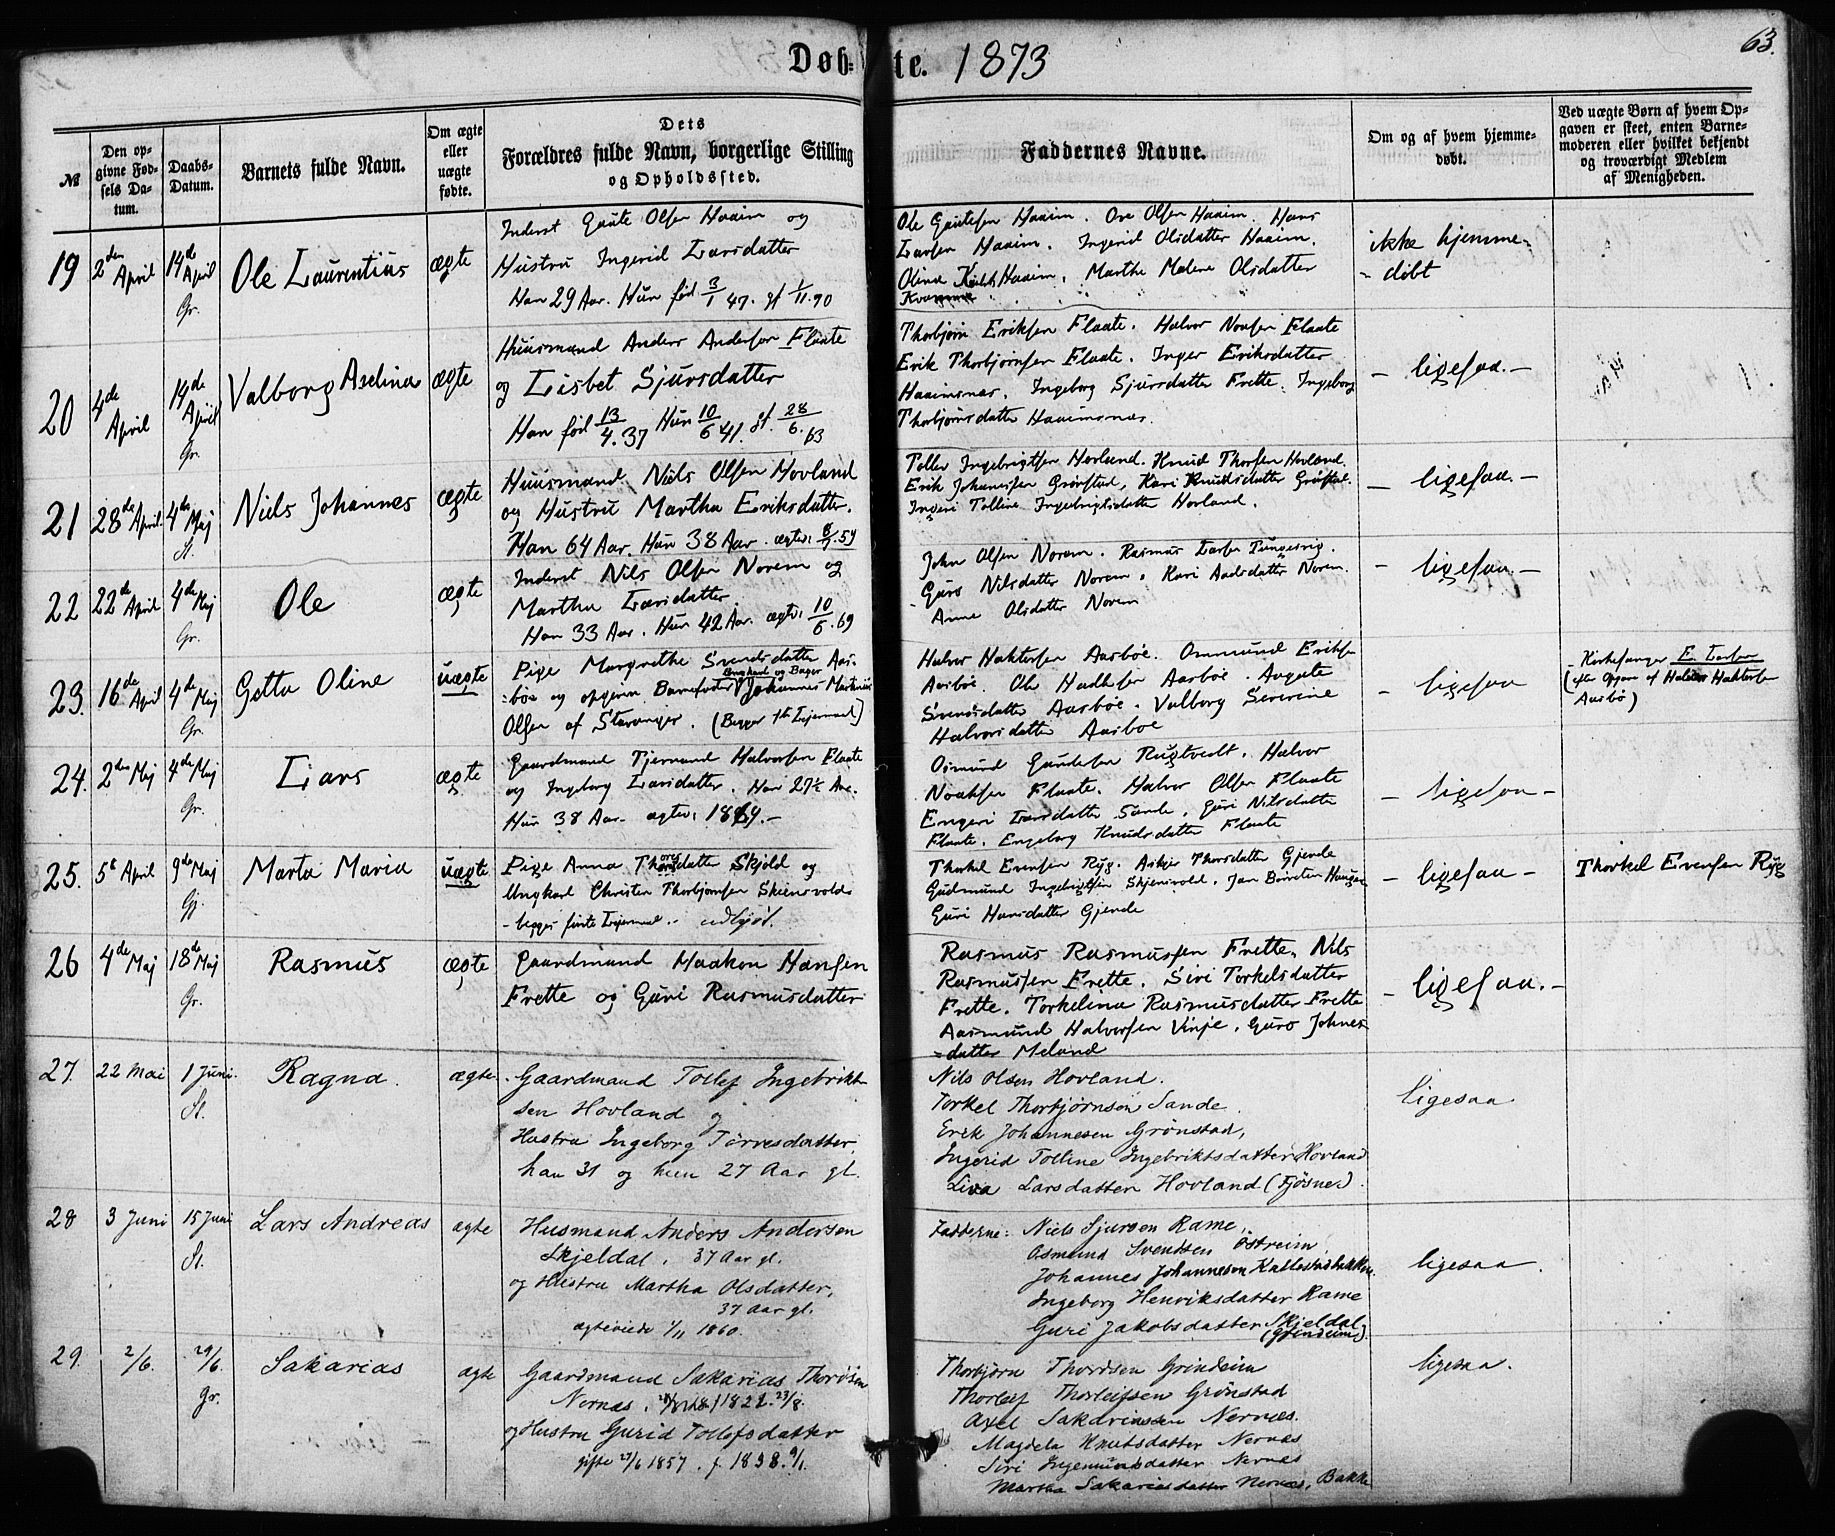 Døb-te. 1873
63.
№
Den op-
givne Fød-
sels Da-
tum.
Daabs-
Datum.
Barnets fulde Navn.
Om ægte
eller
uægte
fødte.
Dets
Forældres fulde Navn, borgerlige Stilling
og Opholdssted.
Faddernes Navne.
Om og af hvem hjemme-
døbt.
Ved uægte Børn af hvem Op-
gaven er skeet, enten Barne-
moderen eller hvilket bekjendt
og troværdigt Medlem
af Menigheden.
19 2den April 14de April Gr. Ole Laurentius ægte
Inderst Gaute Olsen Haaim og
Hustru Ingerid Larsdatter
Han 29 Aar. Hun fød 3/1 47. gf 1/11.70
Ole Gautesen Haaim. Ove Olsen Haaim. Hans
Larsen Haaim. Ingerid Olsdatter Haaim.
Olina Haaim. Marthe Malene Olsdatter
Kvamme
ikke hjemme-
- døbt
20 4de April 14de April Gr. Valborg Aselina ægte
Huusmand Anders Andersen Flaate
og Lisbet Sjursdatter
Han fød 13/4.37 Hun 10/6 41. gf. 28/6.63
Thorbjørn Eriksen Flaate. Halvor Noasen Flaate
Erik Thorbjørnsen Flaate. Inger Eriksdatter
Haaimsnæs. Ingeborg Sjursdatter Frette. Ingeborg
Thorbjørnsdatter Haaimsnæs.
- ligesaa. -
21 28de April 4de Maj St. Niels Johannes ægte
Huusmand Niels Olsen Hovland
og Hustru Martha Eriksdatter.
Han 64 Aar. Hun 38 Aar. ægtev. 8/7.59
Tollev Ingebrigtsen Hovland. Knud Thorsen Hovland.
Erik Johannesen Grønstad, Kari Knudsdatter Grønstad.
Ingeri Tolline Ingebrigtsdatter Hovland.
- ligesaa. -
22 22de April 4de Maj Gr. Ole ægte
Inderst Nils Olsen Norem og
Martha Larsdatter
Han 33 Aar. Hun 42 Aar. ægtv. 10/6.69
John Olsen Norem. Rasmus Larsen Tungesvig.
Guro Nilsdatter Norem. Kari Aadsdatter Norem.
Anne Olsdatter Norem
- ligesaa. -
23. 16de April 4de Maj Gr. Getta Oline uægte
Pige Margrethe Svendsdatter Aas-
Ungkarl og Bager
bøe og opgiven Barnefader Johannes Martinius
Olsen af Stavanger. (Begges 1ste Leiermaal)
Halvor Haktorsen Aasbøe. Ommund Eriksen
Aasbøe. Ole Aasbøe. Augusta
Svendsdatter Aasbøe. Valborg Severine
Halvorsdatter Aasbøe
- ligesaa
Kirkesanger E. Larsen
(efter Opgave af Halvor Haktorsen
Aasbø)
24. 2den Maj 4de Maj Gr. Lars ægte
Gaardmand Tjerand Halvorsen Flaate
og Ingeborg Larsdatter. Han 27½ Aar.
Hun 38 Aar. ægtev. 1869. -
Osmund Gundersen Rugtvedt. Halvor
Noaksen Flaate. Halvor Olsen Flaate
Engeri Larsdatter Sande. Guri Nilsdatter
Flaate. Engeborg Knudsdatter Flaate
- ligesaa -
25. 5te April 9de Maj Gj. Marta Maria uægte
Pige Anna Thoresdatter Skjold og
Ungkarl Christen Thorbjørnsen Skiensvold
- begges første Leiermaal.
Thorkel Evensen Ryg. Askjer Thorsdatter Gjende
Gudmund Ingebrigtsen Skjensvold. Jan Børreten Haugen
Guri Hansdatter Gjende
- ligesaa -
Thorkel Evensen Ryg
26 4de Maj 18de Maj Gr. Rasmus ægte
Gaardmand Haakon Hansen
Frette og Guri Rasmusdatter
Rasmus Rasmussen Frette. Nils
Rasmussen Frette. Siri Torkelsdatter
Frette. Torkelina Rasmusdatter Frette
Aasmund Halvorsen Vinje. Guro Johnes-
-datter Meland
- ligesaa. -
27. 22 Mai 1 Juni. St. Ragna. ægte.
Gaardmand Tollef Ingebrikt-
sen Hovland og
Hustru Ingeborg Torresdatter,
han 31 og hun 27 Aar gl.
Nils Olsen Hovland.
Torkel Thorbjørnsøn Sande.
Erik Johannesen Grønstad,
Ingerid Tolline Ingebriktsdatter Hovland
Liva Larsdatter Hovland (Fjøsne.).
ligesaa.
28 3 Juni 15 Juni St. Lars Andreas ægte
Husmand Anders Andersen
Skjeldal. 37 Aar gl.
og Hustru Martha Olsdatter,
37 Aar gl.
ægteviede 1/11 1860.
Fadderne: Niels Sjurson Rame,
Osmund Svendsen Østreim
Johannes Johanneson Kallestadbakken.
Ingeborg Henriksdatter Rame
Guri Jakobsdatter Skjeldal
(Grindeim).
ligesaa.
29. 2/6. 29/6. Gr. Sakarias ægte
Gaardmand Sakarias Thorøsen
Nernæs. 1822. 23/8.
og Hustru Gurid Tollefsdatter
gifte 27/6 1857. f. 1838. 9/1.
Thorbjørn Thordsen Grindeim
Thorleif Thorleifsen Grønstad
Axel Sakariassen Nernæs.
Magdela Knutsdatter Nernæs
Siri Ingemundsdatter Nernæs
Martha Sakariasdatter Nernæs, Bakke
ligesaa.